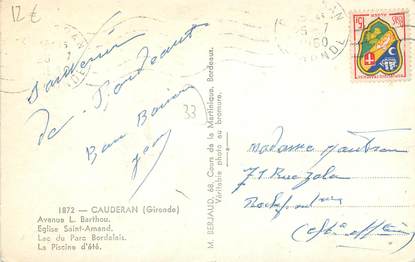 12 €
Souvenir
de Bordeaux
Bon Baiser
33
1872 — CAUDERAN (Gironde)
Avenue L. Barthou.
Eglise Saint-Amand.
Lac du Parc Bordelais.
La Piscine d'été.
M. BERJAUD, 68, Cours de la Martinique, Bordeaux.
Véritable photo au bromure.
Madame
71 Rue Zola
Rochefort